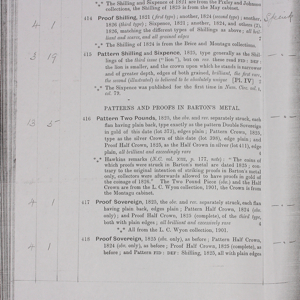 „*„ The Sixpence of 1821 are from the Finlay and Johnson
collections, the Shilling of 1825 is from the May cabinet.
4 1
414 Proof Shilling, 1821 (first type); another, 1824 (second type); another,
1825 (third type); Sixpence, 1821; another, 1825, and others (2),
1826, matching the different types of Shillings as above; all bril-
liant and scarce, and all grained edges
„*„ The Shilling of 1824 is from the Brice and Montagu collections.
3 19
415 Pattern Shilling and Sixpence, 1825, type generally as the Shil-
lings of the third issue ("lion"), but on rev. there reads FID : DEF :
the lion is smaller, and the crown upon which he stands is narrower
and of greater depth, edges of both grained, brilliant, the first rare,
the second (illustrated) is believed to be absolutely unique [Pl. IV]
„*„ The Sixpence was published for the first time in Num. Chr.
PATTERNS AND PROOFS IN BARTON'S METAL
13 5
416 Pattern Two Pounds, 1825, the obv. and rev. separately struck, each
flan having plain back, type exactly as the pattern Double Sovereign
in gold of this date (lot 373), edges plain; Pattern Crown, 1829,
type as the silver Crown of this date (lot 398), edges plain; and
Proof Half Crown, 1823, as the Half Crown in silver (lot 411), edges
plain, all brilliant and exceedingly rare
„*„ Hawkins remarks (N.C. vol. xiii, p. 177, note) "The coins of
which proofs were struck in Barton's metal are dated 1825; con-
trary to the original intention of striking proofs in Barton's metal
only, collectors were afterwards allowed to have proofs in gold of
the coinage of 1826." The Two Pound Piece (obv.) and the Half
Crown are from the L. C. Wyon collection, 1901, the Crown is from
the Montagu cabinet.
4 1
417 Proof Sovereign, 1825, the obv. and rev. separately struck, each flan
having plain back, edges plain; Pattern Half Crown, 1824 (obv.
only); and Proof Half Crown, 1823 (complete), of the third type,
both with plain edges; all brilliant and exceedingly rare
„*„ All from the L. C. Wyon collection, 1901.
4 1
418 Proof Sovereign, 1825 (obv. only), as before; Pattern Half Crown,
1824 (obv. only), as before; Proof Half Crown, 1823 (complete), as
before; and Pattern FID : DEF : Shilling, 1825, all with plain edges